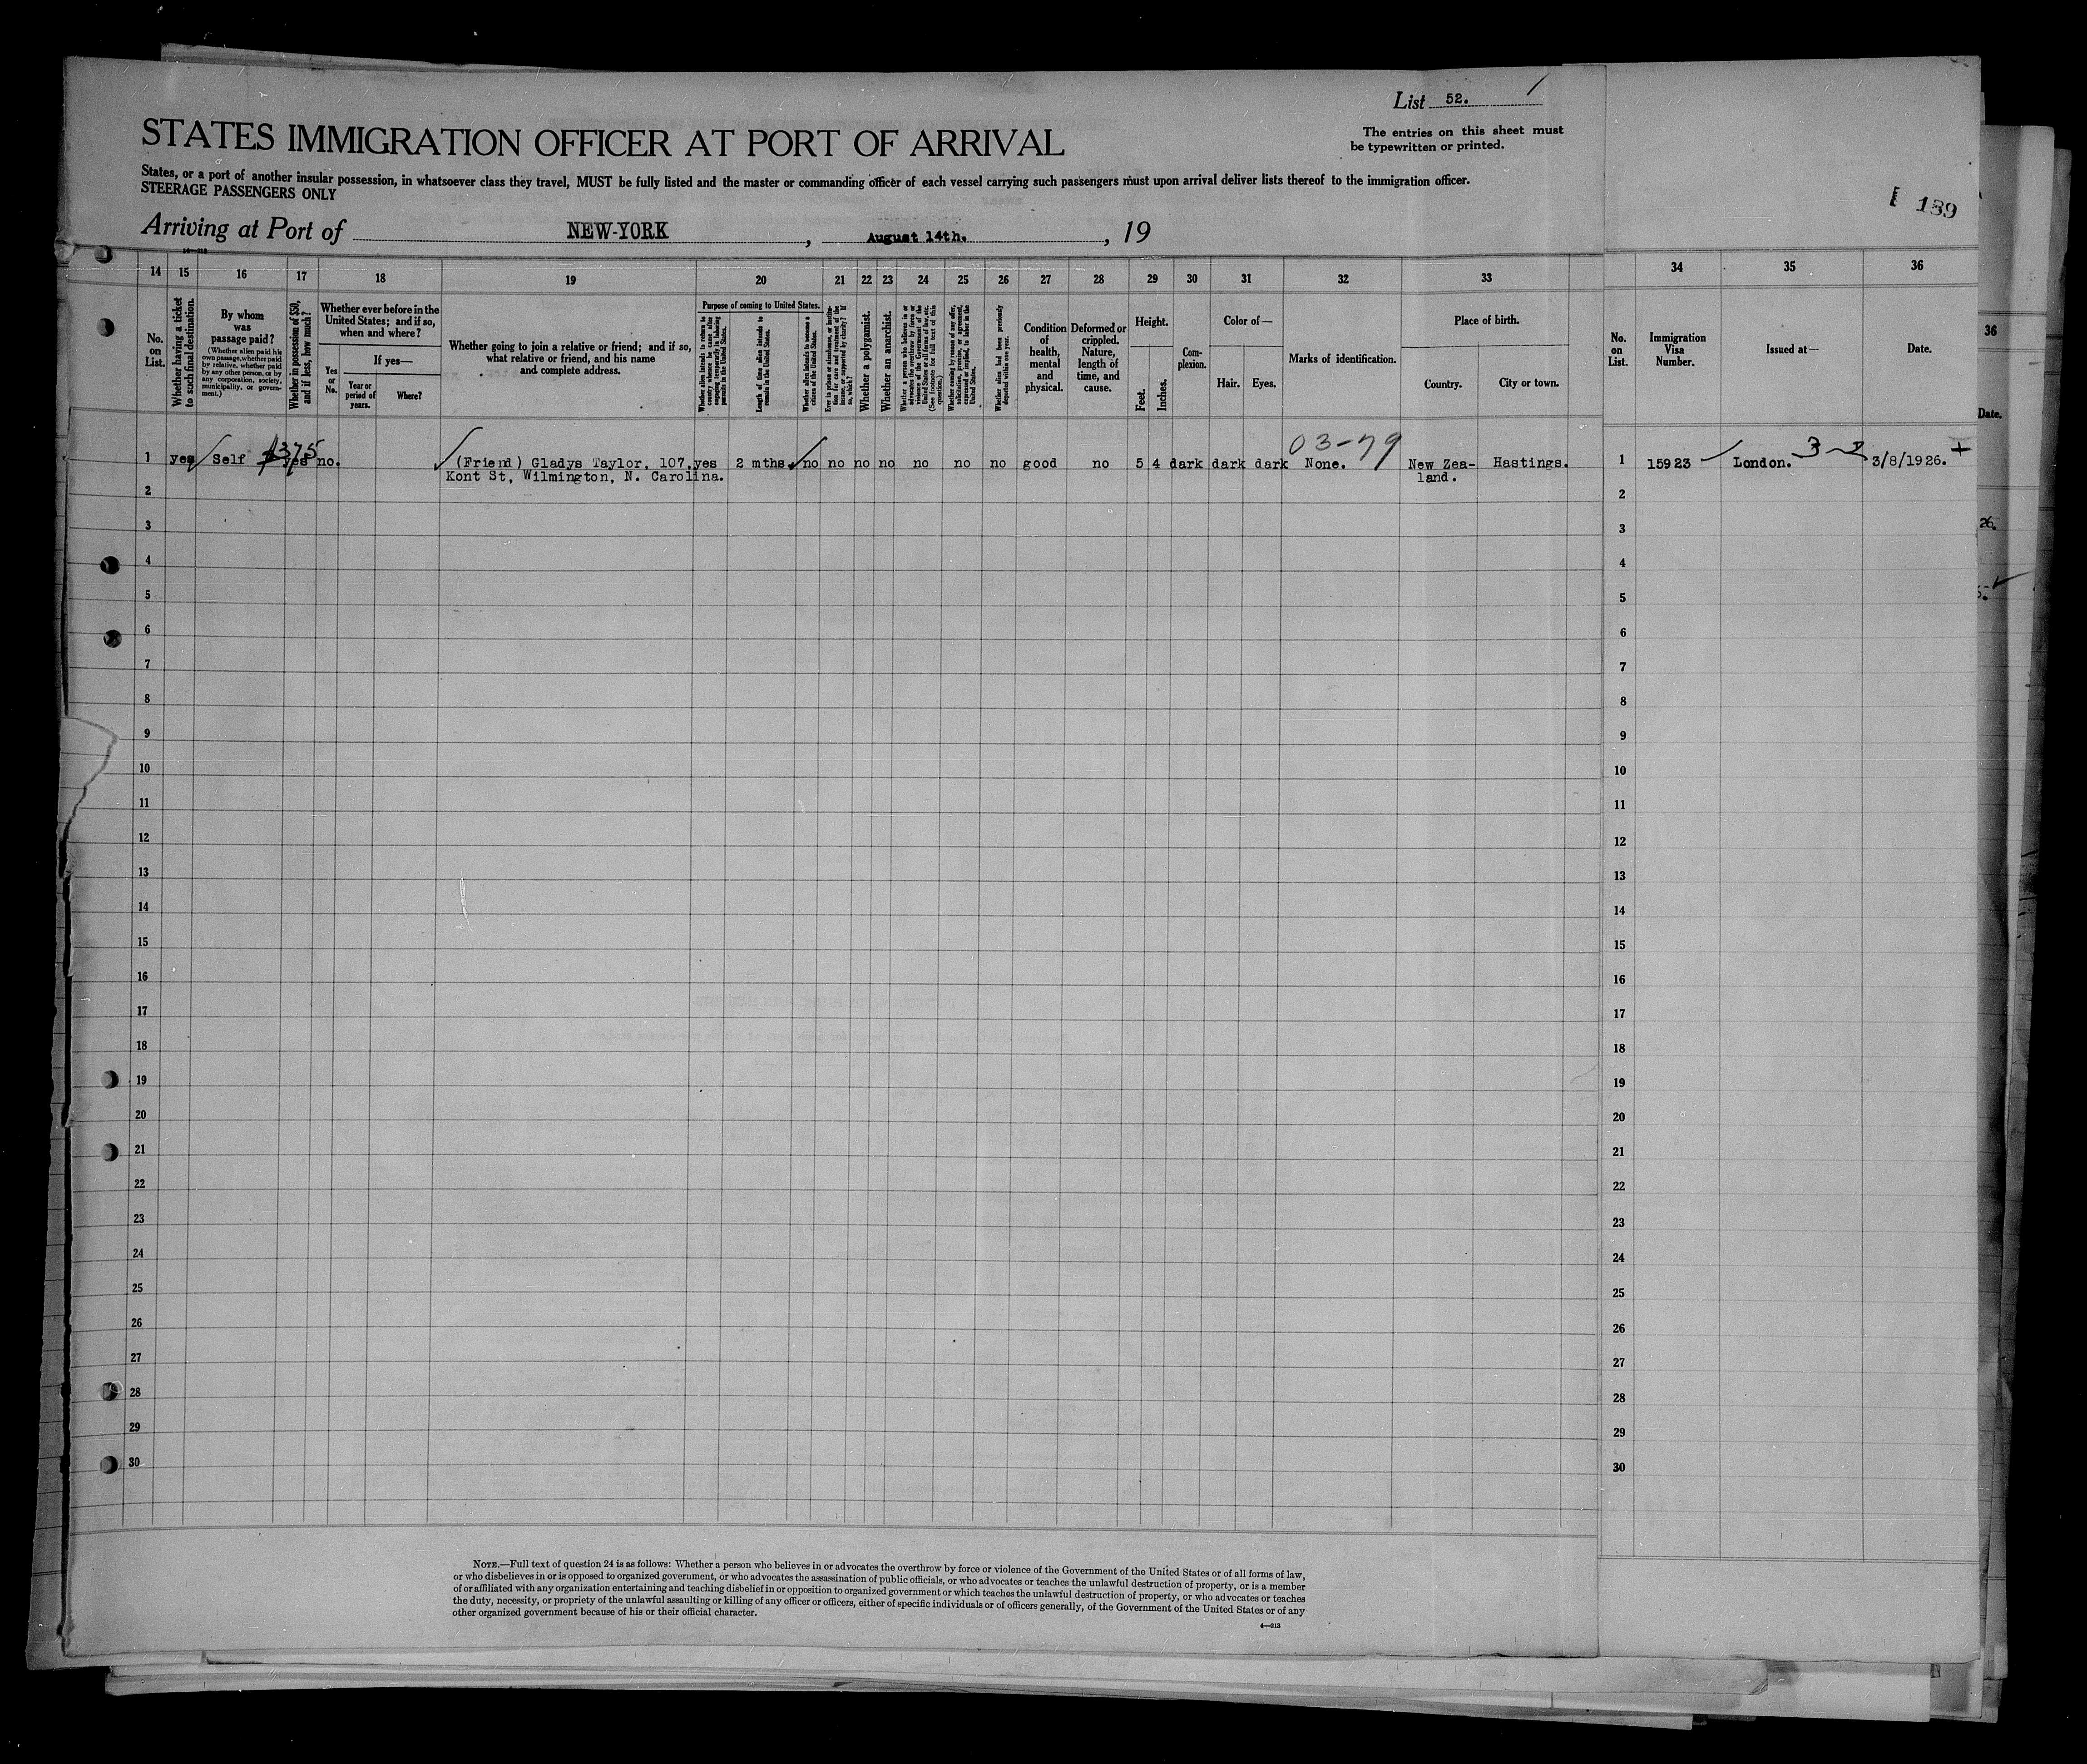 List 52. /
STATES IMMIGRATION OFFICER AT PORT OF ARRIVAL
The entries on this sheet must
be typewritten or printed.
States, or a port of another insular possession, in whatsoever class they travel, MUST be fully listed and the master or commanding officer of each vessel carrying such passengers must upon arrival deliver lists thereof to the immigration officer.
STEERAGE PASSENGERS ONLY
189
Arriving at Port of NEW-YORK, August 14th., 19
14 15 16 17 18 19 20 21 22 23 24 25 26 27 28 29 30 31 32 33 34 35 36
No. on List.
Whether having a ticket to such final destination.
By whom was passage paid?
(Whether alien paid his own passage, whether paid by relative, whether paid by any other person, or by any corporation, society, municipality, or government.)
Whether in possession of $50, and if less, how much?
Whether ever before in the United States; and if so, when and where?
Yes or No.
If yes—
Year or period of years.
Where?
Whether going to join a relative or friend; and if so, what relative or friend, and his name and complete address.
Purpose of coming to United States.
Whether alien intends to return to country whence he came after engaging temporarily in laboring pursuits in the United States.
Length of time alien intends to remain in the United States.
Whether alien intends to become a citizen of the United States.
Ever in prison or almshouse, or institution for care and treatment of the insane, or supported by charity? If so, which?
Whether a polygamist.
Whether an anarchist.
Whether a person who believes in or advocates the overthrow by force or violence of the Government of the United States or all forms of law, etc. (See footnote for full text of this question.)
Whether coming by reason of any offer, solicitation, promise, or agreement, expressed or implied, to labor in the United States.
Whether alien had been previously deported within one year.
Condition of health, mental and physical.
Deformed or crippled. Nature, length of time, and cause.
Height.
Feet.
Inches.
Complexion.
Color of—
Hair.
Eyes.
Marks of identification.
Place of birth.
Country.
City or town.
No. on List.
Immigration Visa Number.
Issued at—
Date.
36
Date.
$375
03-79
3-2
1 yes Self yes no. (Friend) Gladys Taylor, 107, yes 2 mths. no no no no no no no good no 5 4 dark dark dark None. New Zea- Hastings. 1 15923 London. 3/8/1926. +
Kont St, Wilmington, N. Carolina. land.
2 2
3 3
26.
4 4
5 5
6 6
7 7
8 8
9 9
10 10
11 11
12 12
13 13
14 14
15 15
16 16
17 17
18 18
19 19
20 20
21 21
22 22
23 23
24 24
25 25
26 26
27 27
28 28
29 29
30 30
NOTE.—Full text of question 24 is as follows: Whether a person who believes in or advocates the overthrow by force or violence of the Government of the United States or of all forms of law,
or who disbelieves in or is opposed to organized government, or who advocates the assassination of public officials, or who advocates or teaches the unlawful destruction of property, or is a member
of or affiliated with any organization entertaining and teaching disbelief in or opposition to organized government or which teaches the unlawful destruction of property, or who advocates or teaches
the duty, necessity, or propriety of the unlawful assaulting or killing of any officer or officers, either of specific individuals or of officers generally, of the Government of the United States or of any
other organized government because of his or their official character.